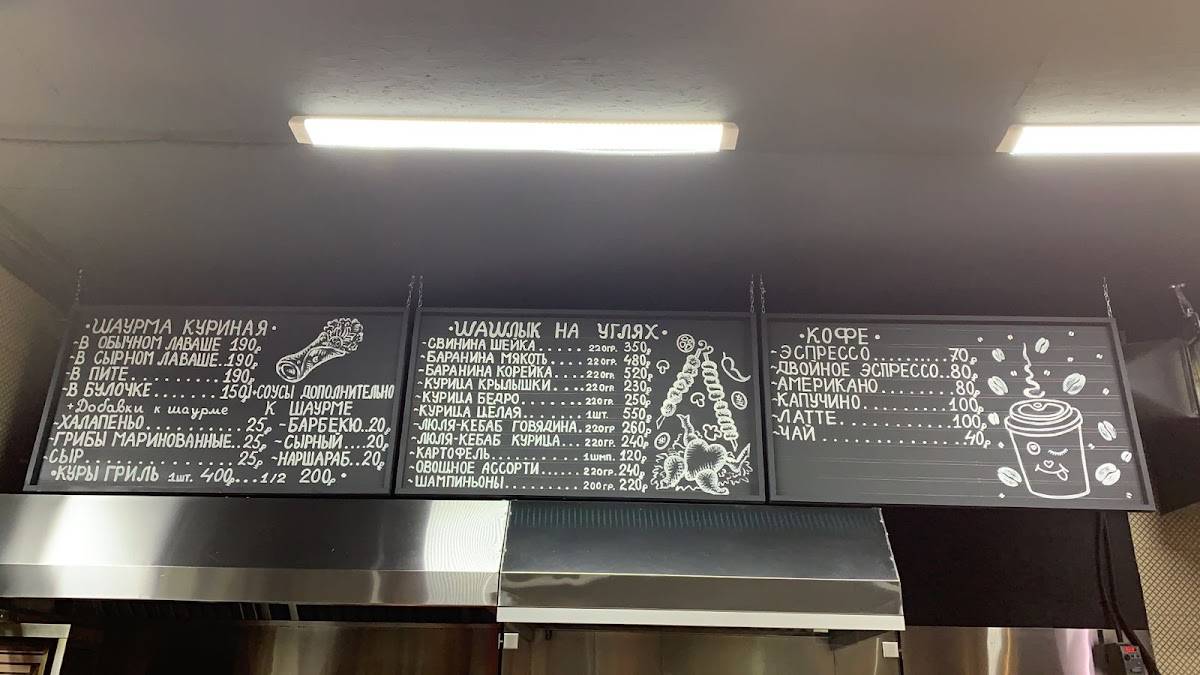 ·ШАУРМА КУРИНАЯ·
-В ОБЫЧНОМ ЛАВАШЕ 190р
-В СЫРНОМ ЛАВАШЕ..190р
-В ПИТЕ..........190р
-В БУЛОЧКЕ........150р
+Добавки к шаурме
-ХАЛАПЕНЬО............25р
-ГРИБЫ МАРИНОВАННЫЕ..25р
-СЫР................25р
+СОУСЫ ДОПОЛНИТЕЛЬНО
К ШАУРМЕ
-БАРБЕКЮ..20р
-СЫРНЫЙ...20р
-НАРШАРАБ..20р
·КУРЫ ГРИЛЬ 1шт. 400р...1/2 200р·
·ШАШЛЫК НА УГЛЯХ·
-СВИНИНА ШЕЙКА...... 220ГР. 350р
-БАРАНИНА МЯКОТЬ..... 220ГР. 480р
-БАРАНИНА КОРЕЙКА.... 220ГР. 520р
-КУРИЦА КРЫЛЫШКИ.... 220ГР 230р
-КУРИЦА БЕДРО........ 220ГР. 250р
-КУРИЦА ЦЕЛАЯ........ 1ШТ. 550р
-ЛЮЛЯ-КЕБАБ ГОВЯДИНА.. 220ГР. 260р
-ЛЮЛЯ-КЕБАБ КУРИЦА... 220ГР. 240р
-КАРТОФЕЛЬ........... 1шмп. 120р
-ОВОЩНОЕ АССОРТИ..... 220ГР. 240р
-ШАМПИНЬОНЫ.......... 200ГР. 220р
·КОФЕ·
-ЭСПРЕССО............70р
-ДВОЙНОЕ ЭСПРЕССО..80р
-АМЕРИКАНО..........80р
-КАПУЧИНО...........100р
-ЛАТТЕ..............100р
-ЧАЙ.................40р